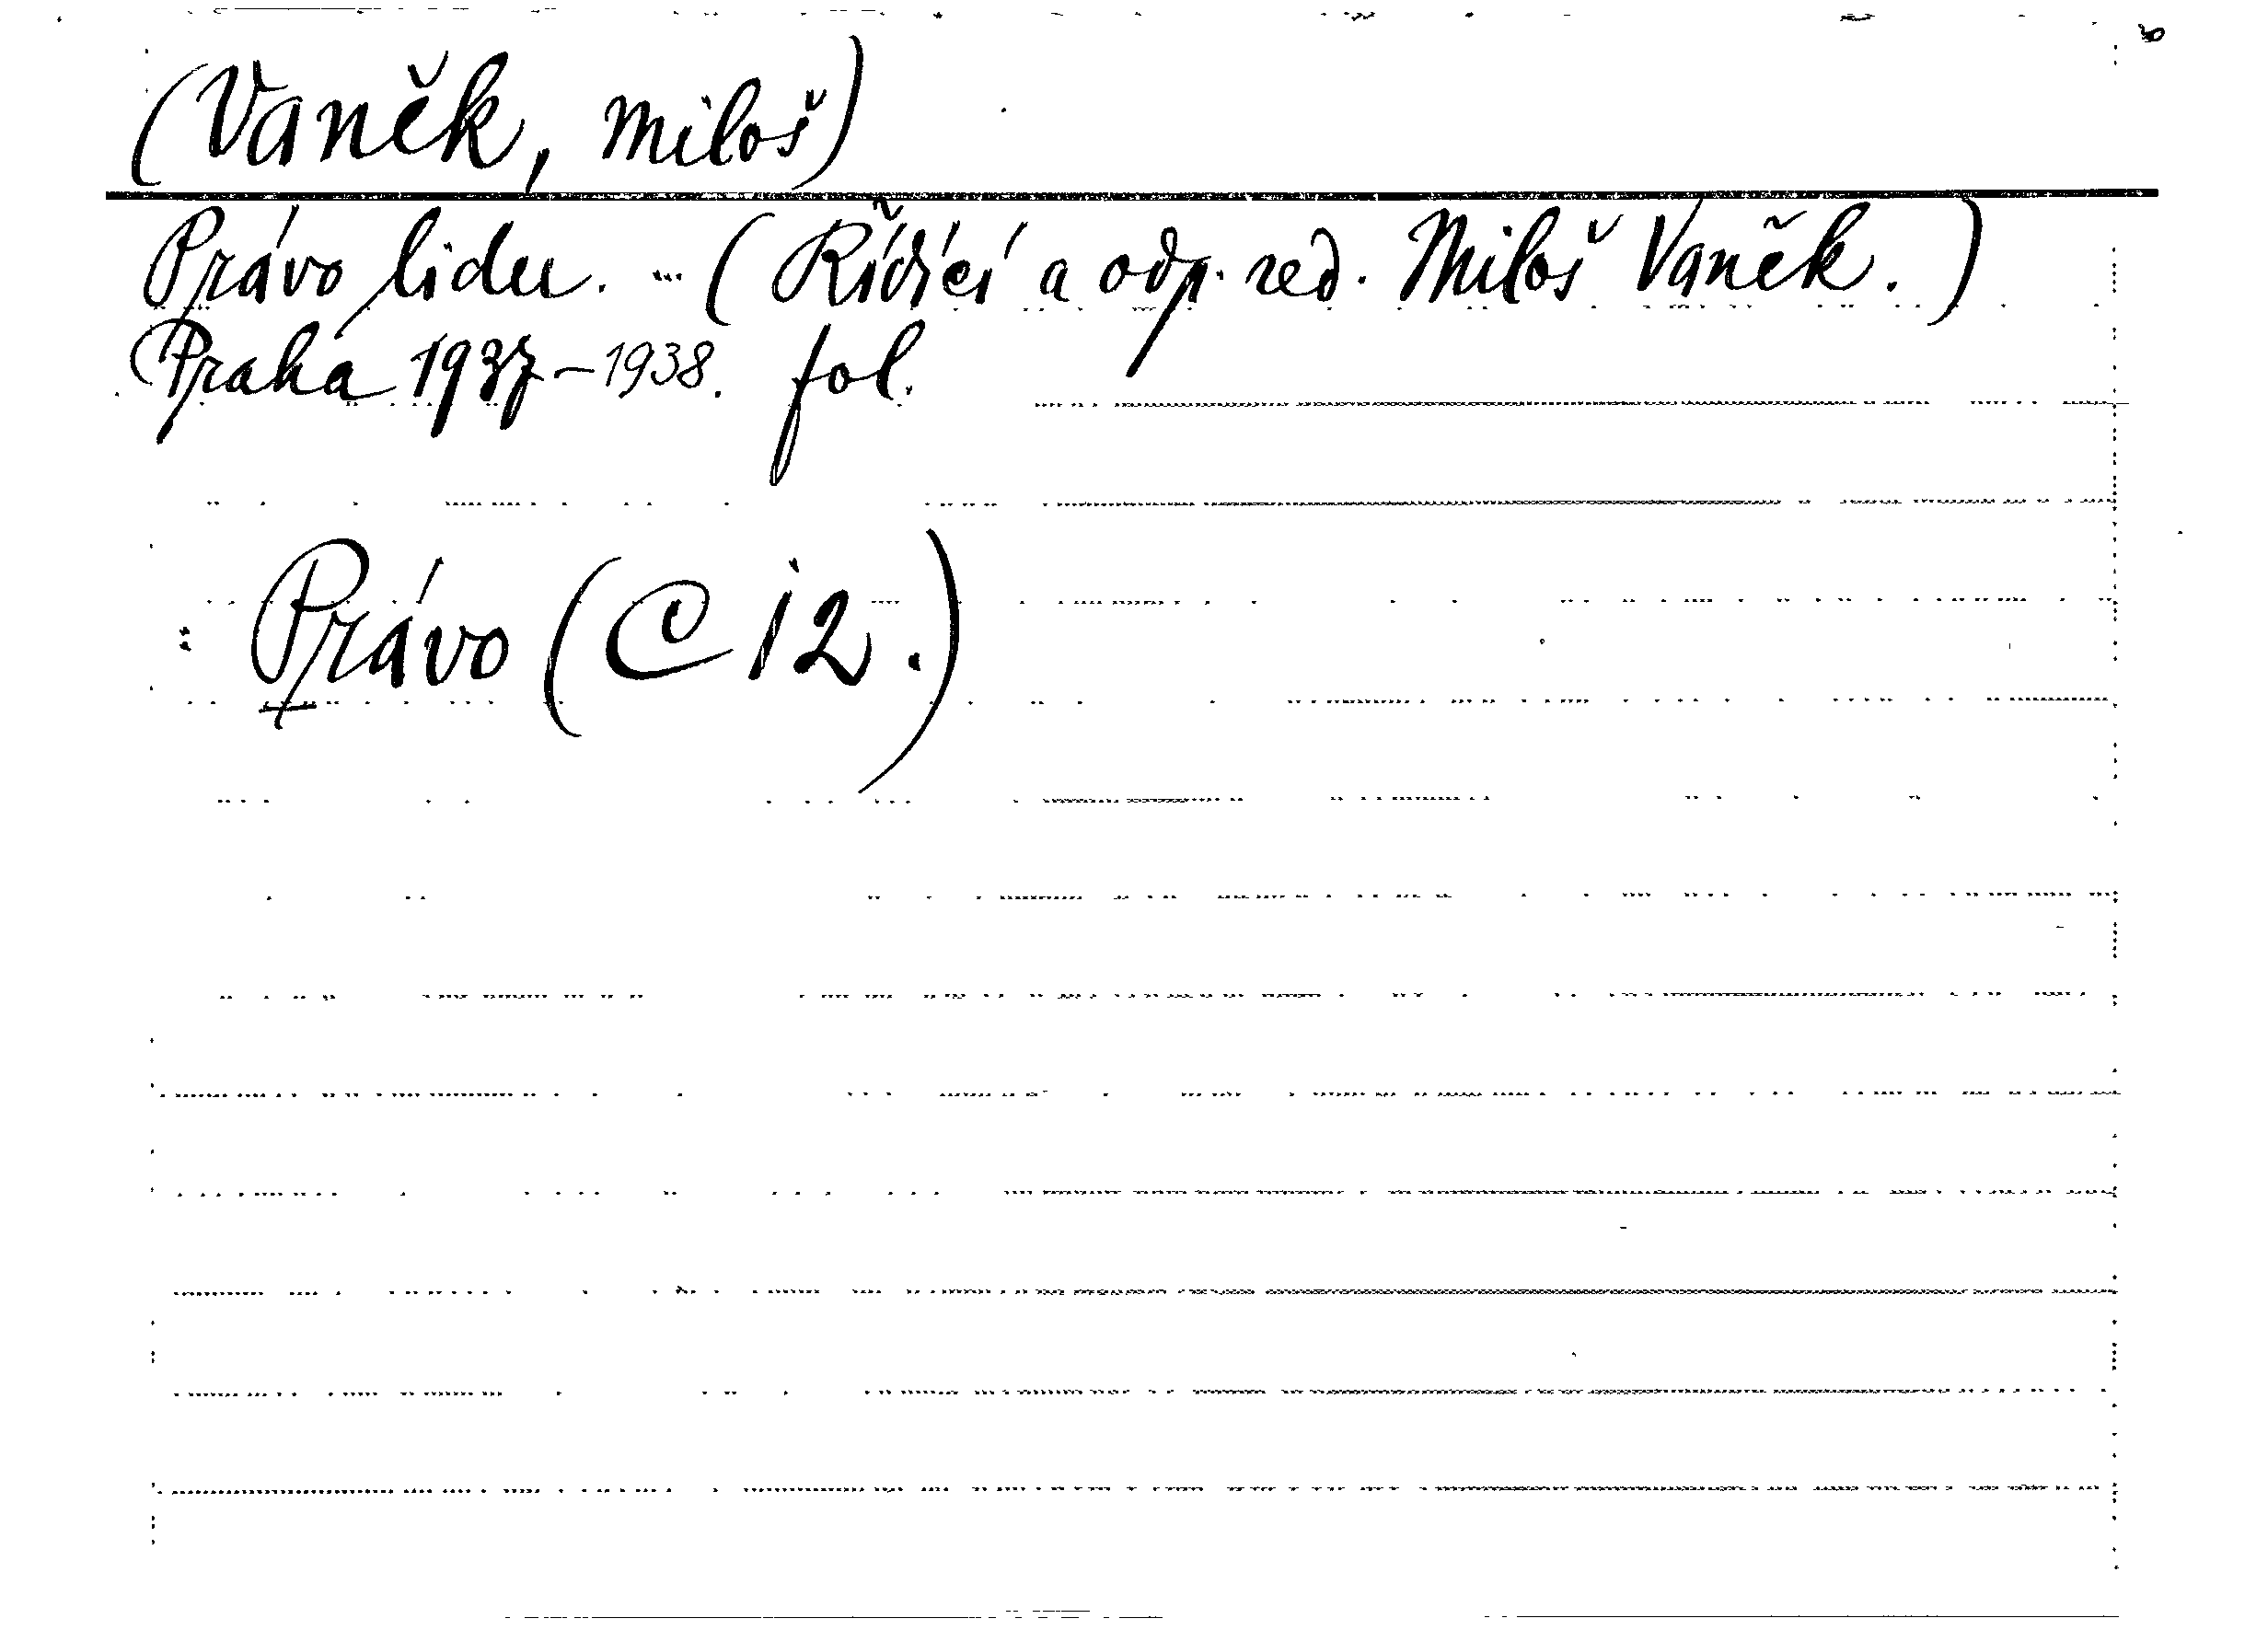 (Vaněk, Miloš)
Právo lidu. ... (Řídící a odp. red. Miloš Vaněk.)
Praha 1937-1938. fol.
: Právo (C 12.)